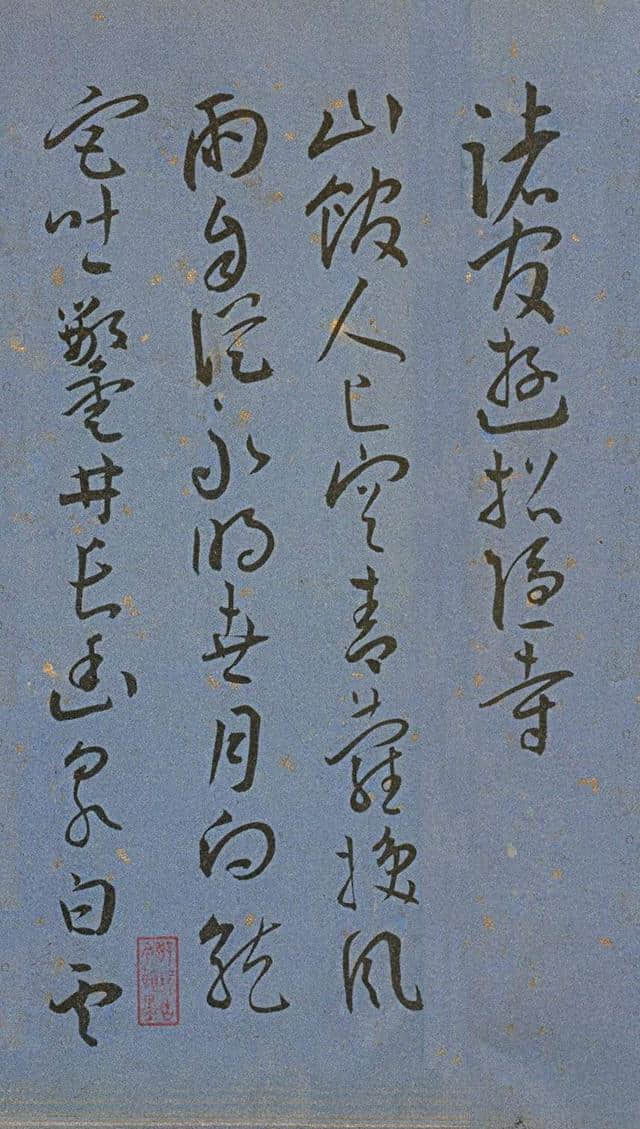 諸官遊招隱寺
山館人已空青蘿換風
雨自從永明世月向龍
宮吐鑿井長幽泉白雲